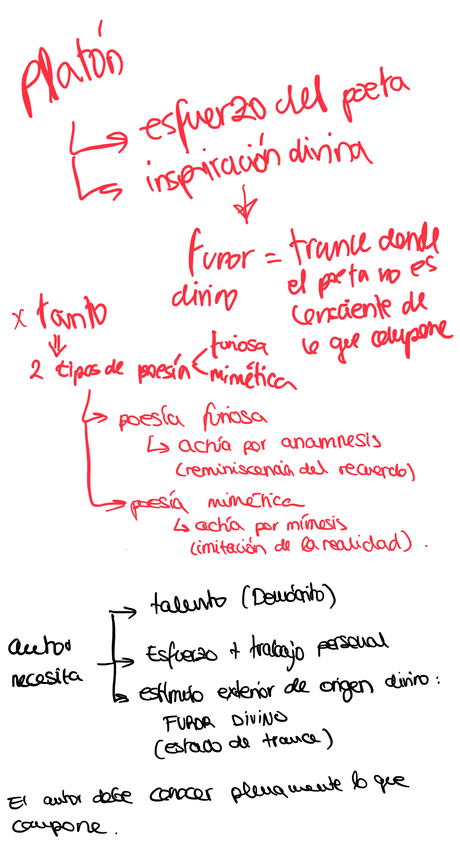 Platón
esfuerzo del poeta
inspiración divina
furor divino = trance donde
el poeta no es
consciente de
lo que compone
x tanto
2 tipos de poesía
furiosa
mimética
poesía furiosa
actúa por anamnesis
(reminiscencia del recuerdo)
poesía mimética
actúa por mímesis
(imitación de la realidad).
autor
necesita
talento (Demócrito)
Esfuerzo + trabajo personal
estímulo exterior de origen divino:
FUROR DIVINO
(estado de trance)
El autor debe conocer plenamente lo que
compone.